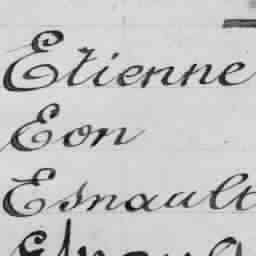 Etienne
Eon
Esnault